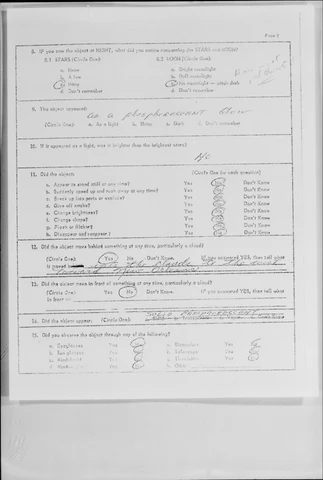 Page 2
8. IF you saw the object at NIGHT, what did you notice concerning the STARS and MOON?
8.1 STARS (Circle One): 8.2 MOON (Circle One):
a. None a. Bright moonlight
b. A few b. Dull moonlight
c. Many c. No moonlight — pitch dark
d. Don't remember d. Don't remember
9. The object appeared:
as a phosphorescent glow
(Circle One): a. As a light b. Shiny c. Dark d. Don't remember
10. If it appeared as a light, was it brighter than the brightest stars?
No
11. Did the object: (Circle One for each question)
a. Appear to stand still at any time? Yes No Don't Know
b. Suddenly speed up and rush away at any time? Yes No Don't Know
c. Break up into parts or explode? Yes No Don't Know
d. Give off smoke? Yes No Don't Know
e. Change brightness? Yes No Don't Know
f. Change shape? Yes No Don't Know
g. Flash or flicker? Yes No Don't Know
h. Disappear and reappear? Yes No Don't Know
12. Did the object move behind something at any time, particularly a cloud?
(Circle One): Yes No Don't Know. IF you answered YES, then tell what
it moved
toward New Orleans
13. Did the object move in front of something at any time, particularly a cloud?
(Circle One): Yes No Don't Know. IF you answered YES, then tell what
14. Did the object appear: (Circle One):
15. Did you observe the object through any of the following?
a. Eyeglasses Yes No e. Binoculars Yes No
b. Sun glasses Yes No f. Telescope Yes No
c. Windshield Yes No g. Theodolite Yes No
d. Yes No h. Other